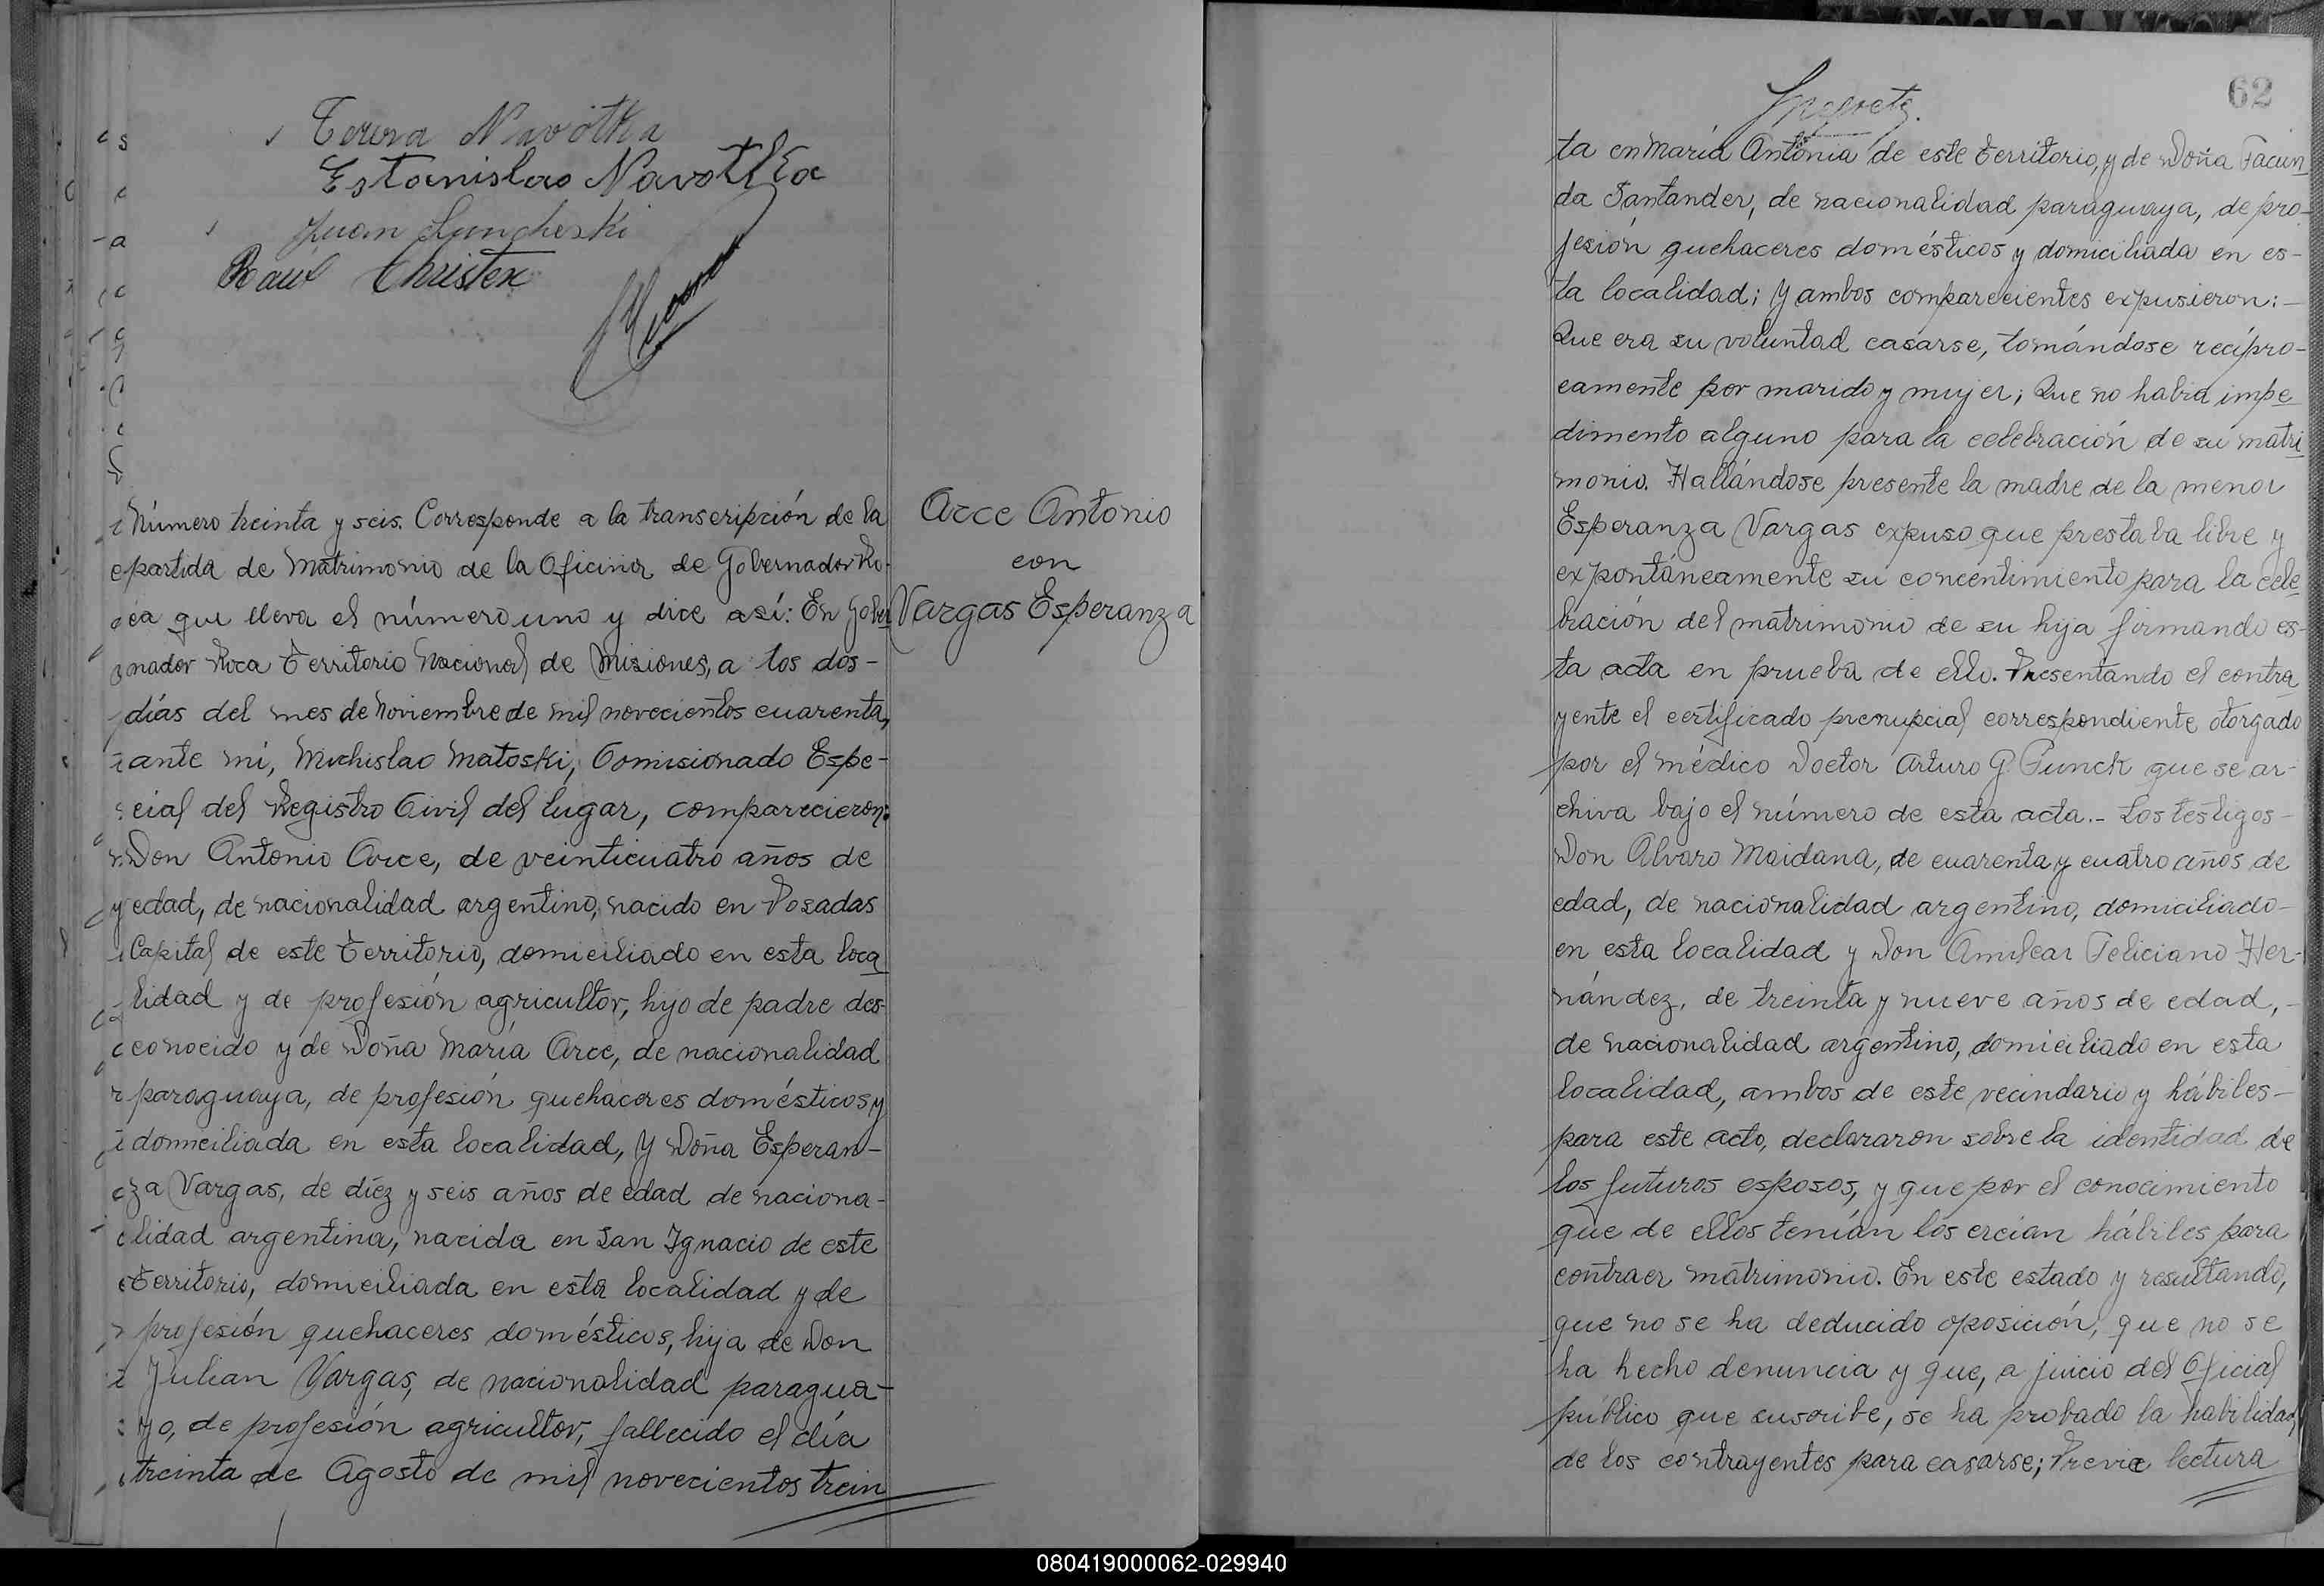 Teresa Navotka
Estanislao Navotka
Juan
Raul Christen
Número treinta y seis. Corresponde a la transcripción de la
partida de Matrimonio de la Oficina de Gobernador Ro-
ca que lleva el número uno y dice así: En Gober
nador Roca Territorio Nacional de Misiones, a los dos-
días del mes de Noviembre de mil novecientos cuarenta,
ante mí, Michislao Matoski, Comisionado Espe-
cial del Registro Civil del lugar, comparecieron:
Don Antonio Arce, de veinticuatro años de
edad, de nacionalidad argentino, nacido en Posadas
Capital de este Territorio, domiciliado en esta loca
lidad y de profesión agricultor, hijo de padre des-
conocido y de Doña María Arce, de nacionalidad
paraguaya, de profesión quehaceres domésticos y
domiciliada en esta localidad, Y Doña Esperan-
za Vargas, de diéz y seis años de edad de naciona-
lidad argentina, nacida en San Ignacio de este
Territorio, domiciliada en esta localidad y de
profesión quehaceres domésticos, hija de Don
Julian Vargas, de nacionalidad paragua-
yo, de profesión agricultor, fallecido el día
treinta de Agosto de mil novecientos trein
Arce Antonio
con
Vargas Esperanza
62
ta en María Antonia de este Territorio, y de Doña Facun
da Santander, de nacionalidad paraguaya, de pro-
fesión quehaceres domésticos y domiciliada en es-
ta localidad; Y ambos comparecientes expusieron:-
Que era su voluntad casarse, tomándose recípro-
camente por marido y mujer; Que no habia impe
dimento alguno para la celebración de su matri
monio. Hallándose presente la madre de la menor
Esperanza Vargas expuso que prestaba libre y
expontáneamente su concentimiento para la cele
bración del matrimonio de su hija firmando es-
ta acta en prueba de ello. Presentando el contra
yente el certificado prenupcial correspondiente otorgado
por el médico Doctor Arturo G. Funck que se ar-
chiva bajo el número de esta acta.- Los testigos-
Don Alvaro Maidana, de cuarenta y cuatro años de
edad, de nacionalidad argentino, domiciliado-
en esta localidad y Don Amilcar Feliciano Her-
nández, de treinta y nueve años de edad,-
de nacionalidad argentino, domiciliado en esta
localidad, ambos de este vecindario y hábiles-
para este acto, declararon sobre la identidad de
los futuros esposos, y que por el conocimiento
que de ellos tenían los creían hábiles para
contraer matrimonio. En este estado y resultando,
que no se ha deducido oposición, que no se
ha hecho denuncia y que, a juicio del Oficial
público que suscribe, se ha probado la habilidad
de los contrayentes para casarse; Previa lectura
080419000062-029940